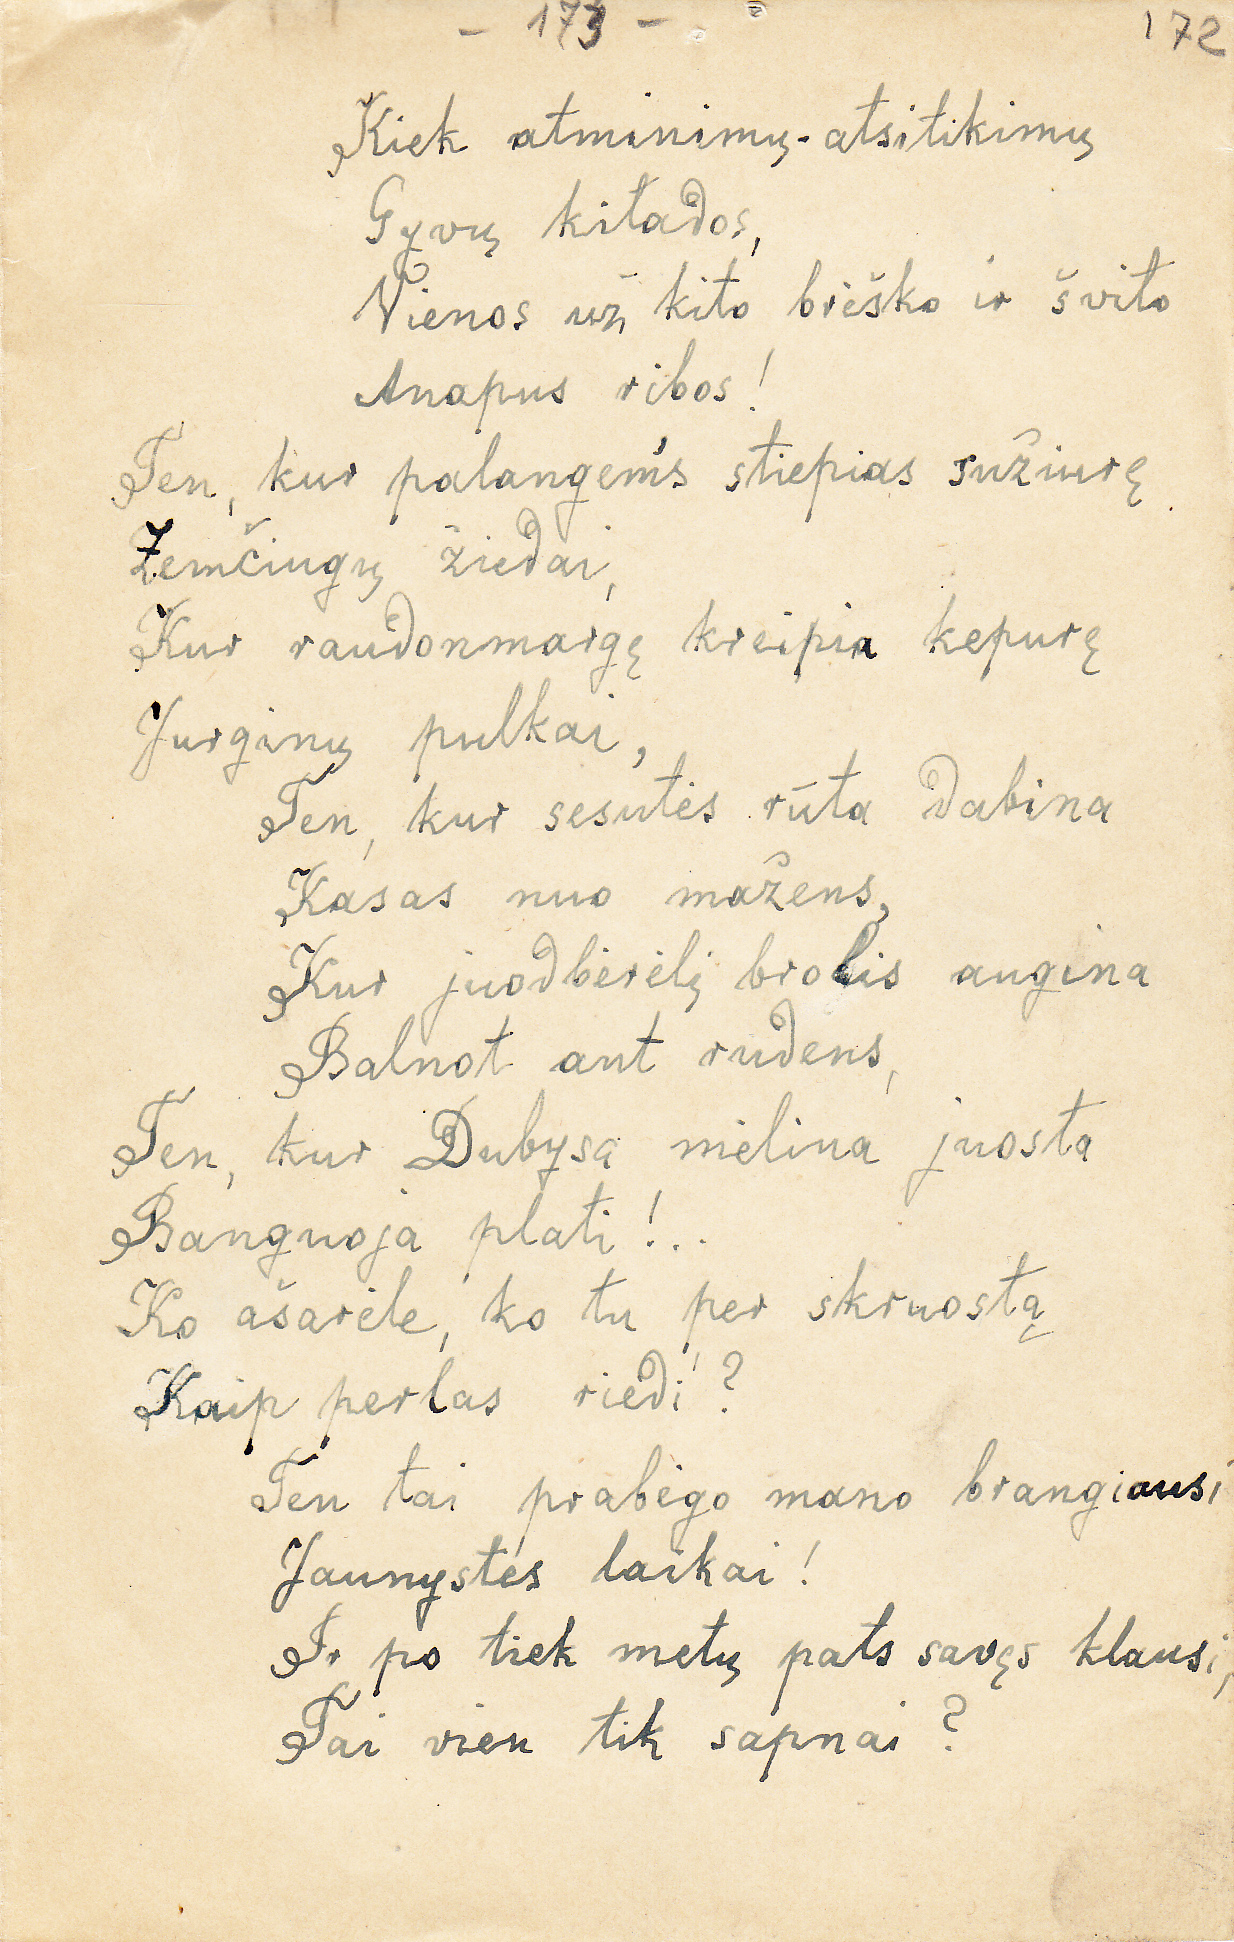 - 173 -
172
Kiek atminimų-atsitikimų
Gyvų kitados,
Vienos už kito brėško ir švito
Anapus ribos!
Ten, kur palangėms stiepias sužiurę
Žemčiugų žiedai,
Kur raudonmargę kreipia kepurę
Jurginų pulkai,
Ten, kur sesutės rūta dabina
Kasas nuo mažens,
Kur juodbėrėlį brolis augina
Balnot ant rudens,
Ten, kur Dubysa mėlina juosta
Banguoja plati!..
Ko ašarėle, ko tu per skruostą
Kaip perlas riedi?
Ten tai prabėgo mano brangiausi
Jaunystės laikai!
Ir po tiek metų pats savęs klausi,
Tai vien tik sapnai?